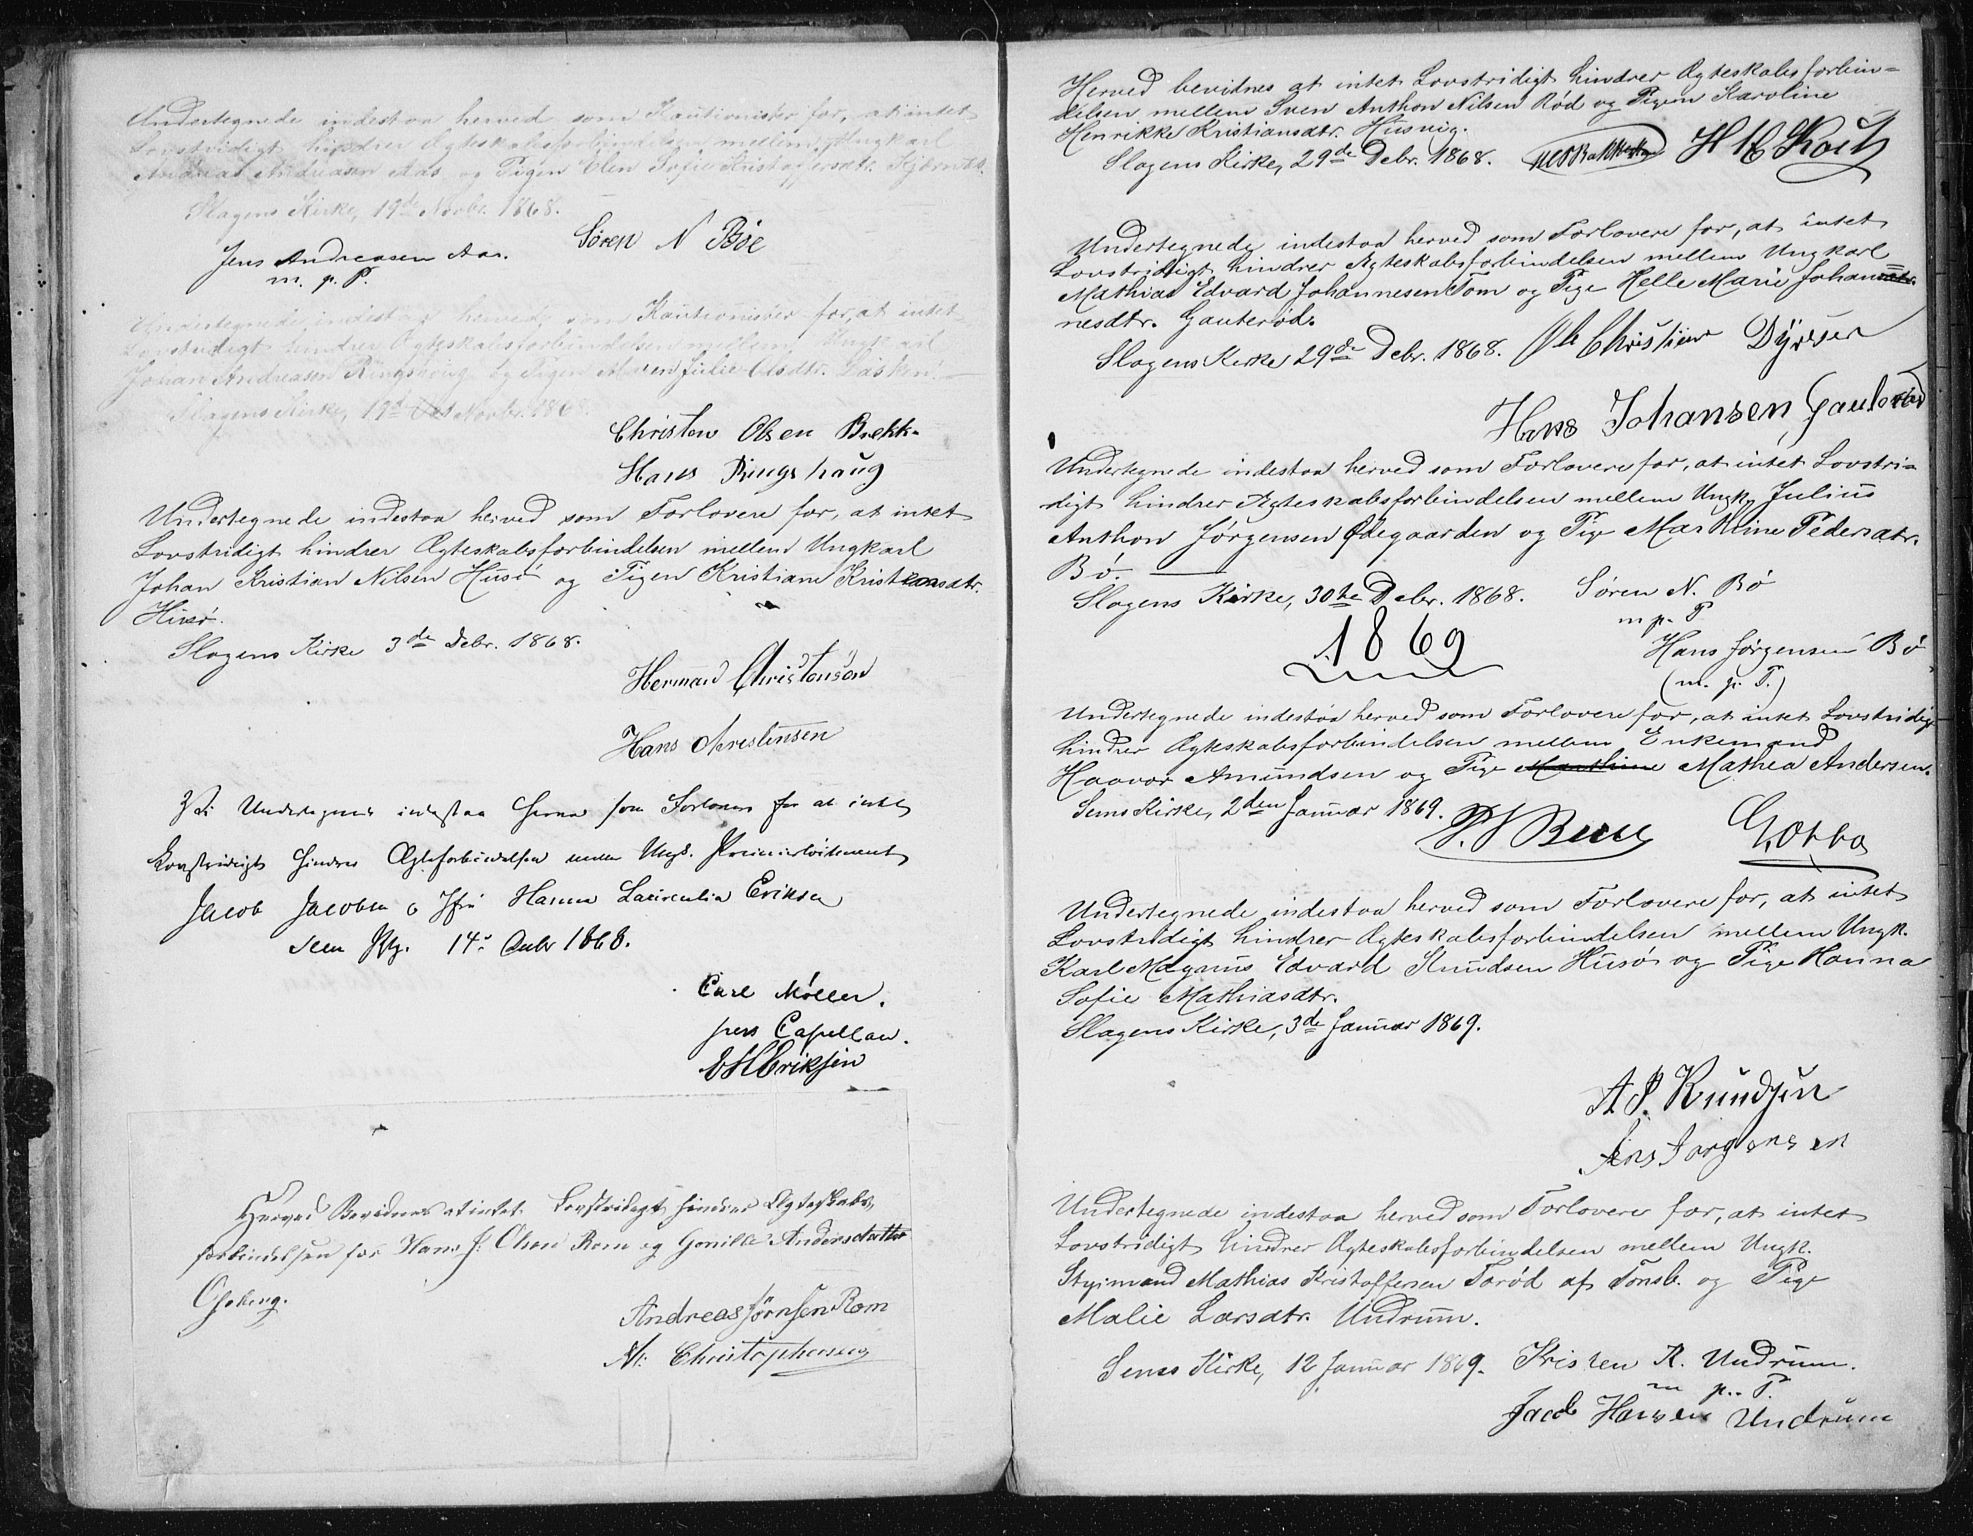 Undertegnede indestaa herved som Kautionister for, at intet
Lovstridigt hindrer Ægteskabsforbindelsen mellem Ungkarl
Andreas Andreasen Aas og Pigen Elen Sofie Kristoffersdtr.
Slagens Kirke, 19de Novbr. 1868.
Jens Andreasen Aas.
m. p. P.
Søren N Bøe
Undertegnede indestaa herved som Kautionister for, at intet
Lovstridigt hindrer Ægteskabsforbindelsen mellem Ungkarl
Johan Andreasen Ringshoug og Pigen Maren Julie Olsdtr.
Slagens Kirke, 19de Novbr. 1868.
Christen Olsen Brekke
Hans Ringshaug
Undertegnede indestaa herved som Forlovere for, at intet
Lovstridigt hindrer Ægteskabsforbindelsen mellem Ungkarl
Johan Kristian Nilsen Husø og Pigen Kristiane Kristiansdtr.
Husø.
Slagens Kirke 3de Debr. 1868.
Herman Christensen
Hans Christensen
Vi Undertegnede indestaa herved som Forlovere for at intet
Lovstridigt hindrer Ægteforbindelsen mellem Ungk. Premierløitenant
Jacob Jacobsen og Jfr. Hanna Laurentia Eriksen
Sem 14de 1868.
Carl Møller.
pers Capellan.
Eriksen
Herved Bevidnes at intet Lovstridigt hindrer Ægteskabs
forbindelsen for Hans J. Olsen Rom og Gunilde Andersdatter
Andreas Jørnsen Rom
N: Christophersen
Herved bevidnes at intet Lovstridigt hindrer Ægteskabsforbin=
delsen mellem Sven Anthon Nilsen Rød og Pigen Karoline
Henrikke Kristiansdtr. Husvig.
Slagens Kirke, 29de Debr. 1868.
Undertegnede indestaa herved som Forlovere for, at intet
Lovstridigt hindrer Ægteskabsforbindelsen mellem Ungkarl
Mathias Edvard Johannesen Tom og Pige Helle Marie Johan=
nesdtr. Gauterød.
Slagens Kirke 29de Debr. 1868. Ole Christian
Hans Johansen Gauterød
Undertegnede indestaa herved som Forlovere for, at intet Lovstri=
digt hindrer Ægteskabsforbindelsen mellem Ungk. Julius
Anthon Jørgensen Ødegaarden og Pige Marthine Pedersdtr.
Bø.
Slagens Kirke, 30te Debr. 1868. Søren N. Bø
m p. P
Hans Jørgensen Bø
(m. p. P.)
1869
Undertegnede indestaa herved som Forlovere for, at intet Lovstridigt
hindrer Ægteskabsforbindelsen mellem Enkemand
Haavor Amundsen og Pige Marthine Mathea Andersen.
Sems Kirke, 2den Januar 1869.
Undertegnede indestaa herved som Forlovere for, at intet
Lovstridigt hindrer Ægteskabsforbindelsen mellem Ungk.
Karl Magnus Edvard Knudsen Husø og Pige Hanna
Sofie Mathiasdtr.
Slagens Kirke, 3de Januar 1869.
A P. Knudsen
Jens Jørgensen
Undertegnede indestaa herved som Forlovere for, at intet
Lovstridigt hindrer Ægteskabsforbindelsen mellem Ungk.
Styrmand Mathias Kristoffersen Farød af Tønsb. og Pige
Malie Larsdtr. Undrum.
Sems Kirke, 12 Januar 1869. Kristen K. Undrum.
m p. P.
Jacob Hansen Undrum